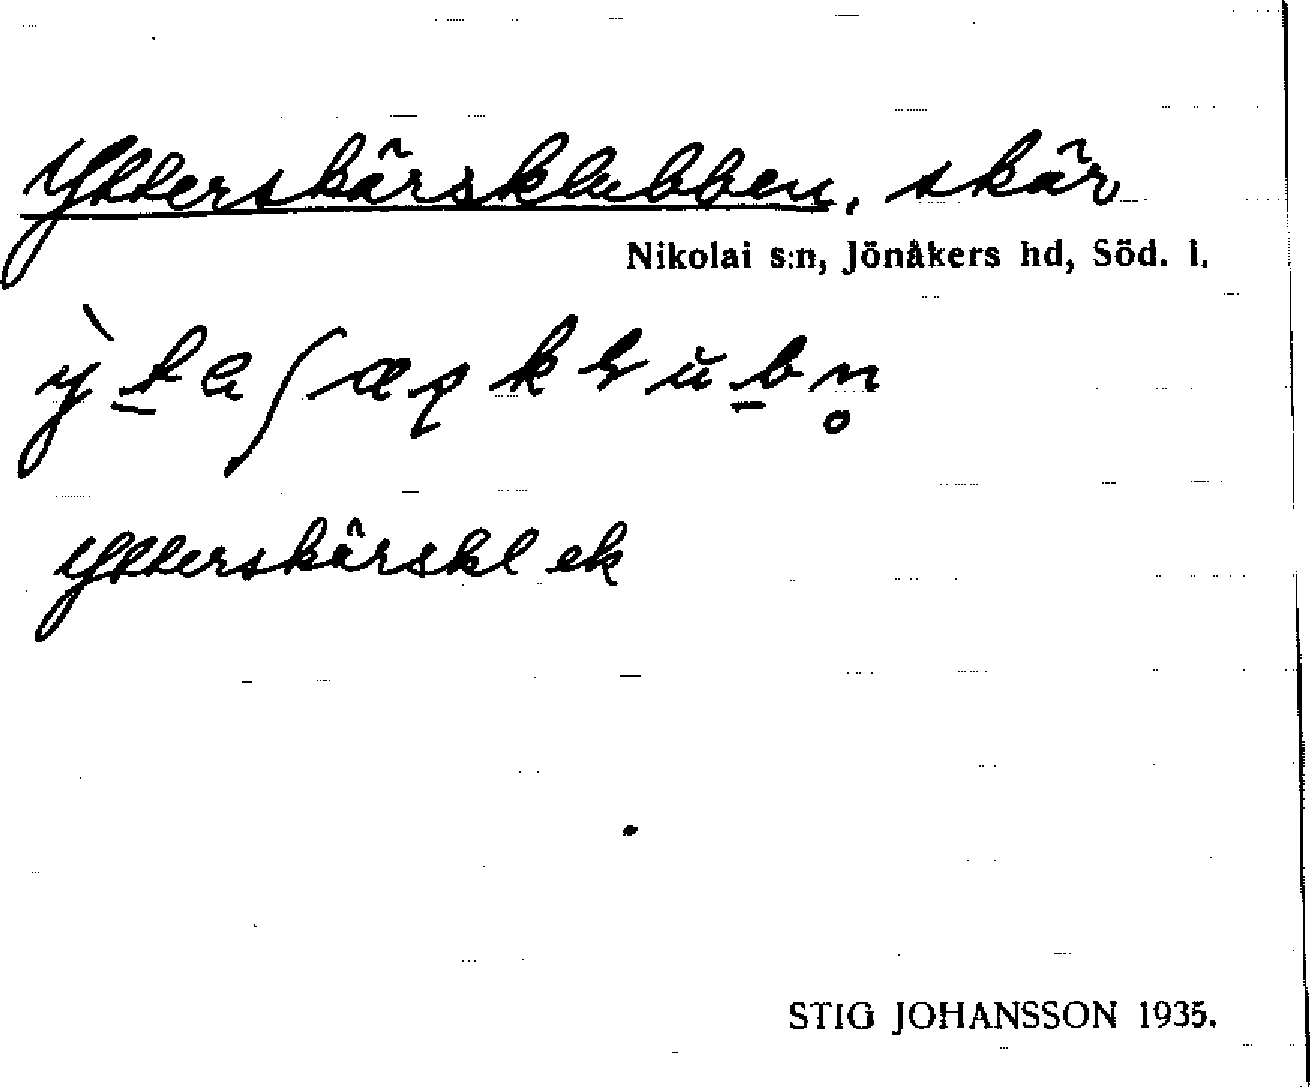 Ytterskärsklubben, skär
Nikolai s:n, Jönåkers hd, Söd. l.
Ytterskärskl ek
STIG JOHANSSON 1935.